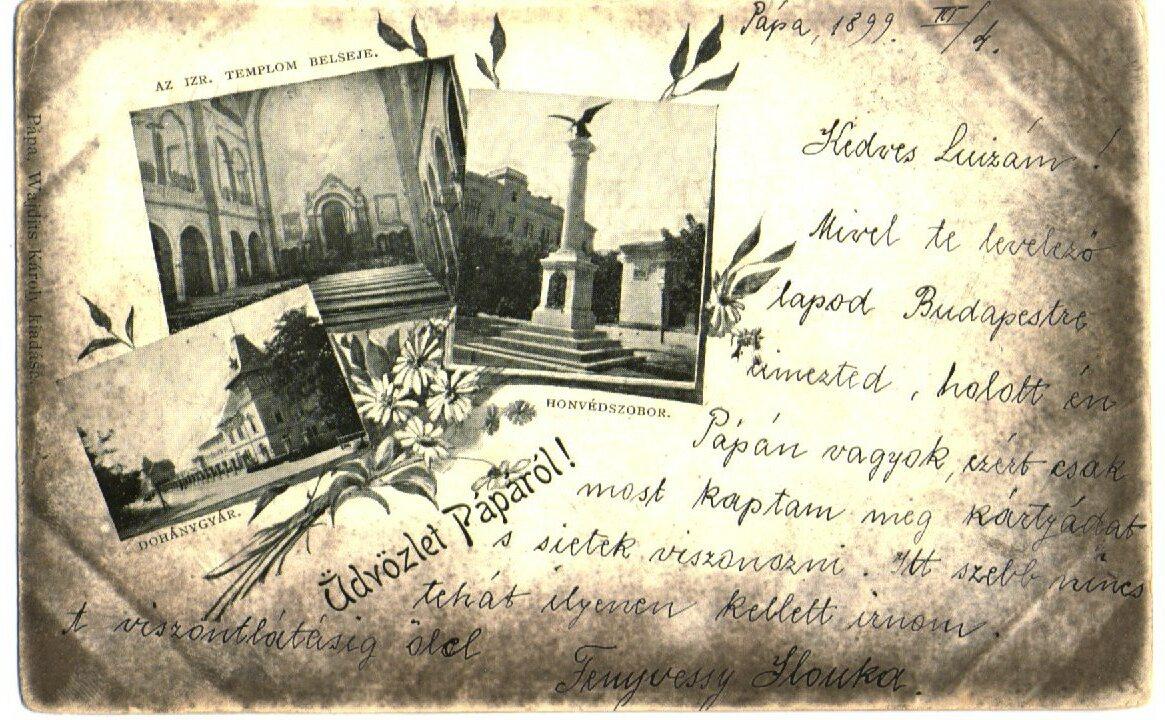 Pápa, 1899. III/4.
AZ IZR. TEMPLOM BELSEJE.
Pápa, Wajdits Károly kiadása.
HONVÉDSZOBOR.
DOHÁNYGYÁR.
Üdvözlet Pápáról!
Kedves Luizám!
Mivel te levelező
lapod Budapestre
címezted, holott én
Pápán vagyok, ezért csak
most kaptam meg kártyádat
s sietek viszonozni. Itt szebb nincs
tehát ilyenen kellett irnom.
A viszontlátásig ölel
Fenyvessy Ilonka.